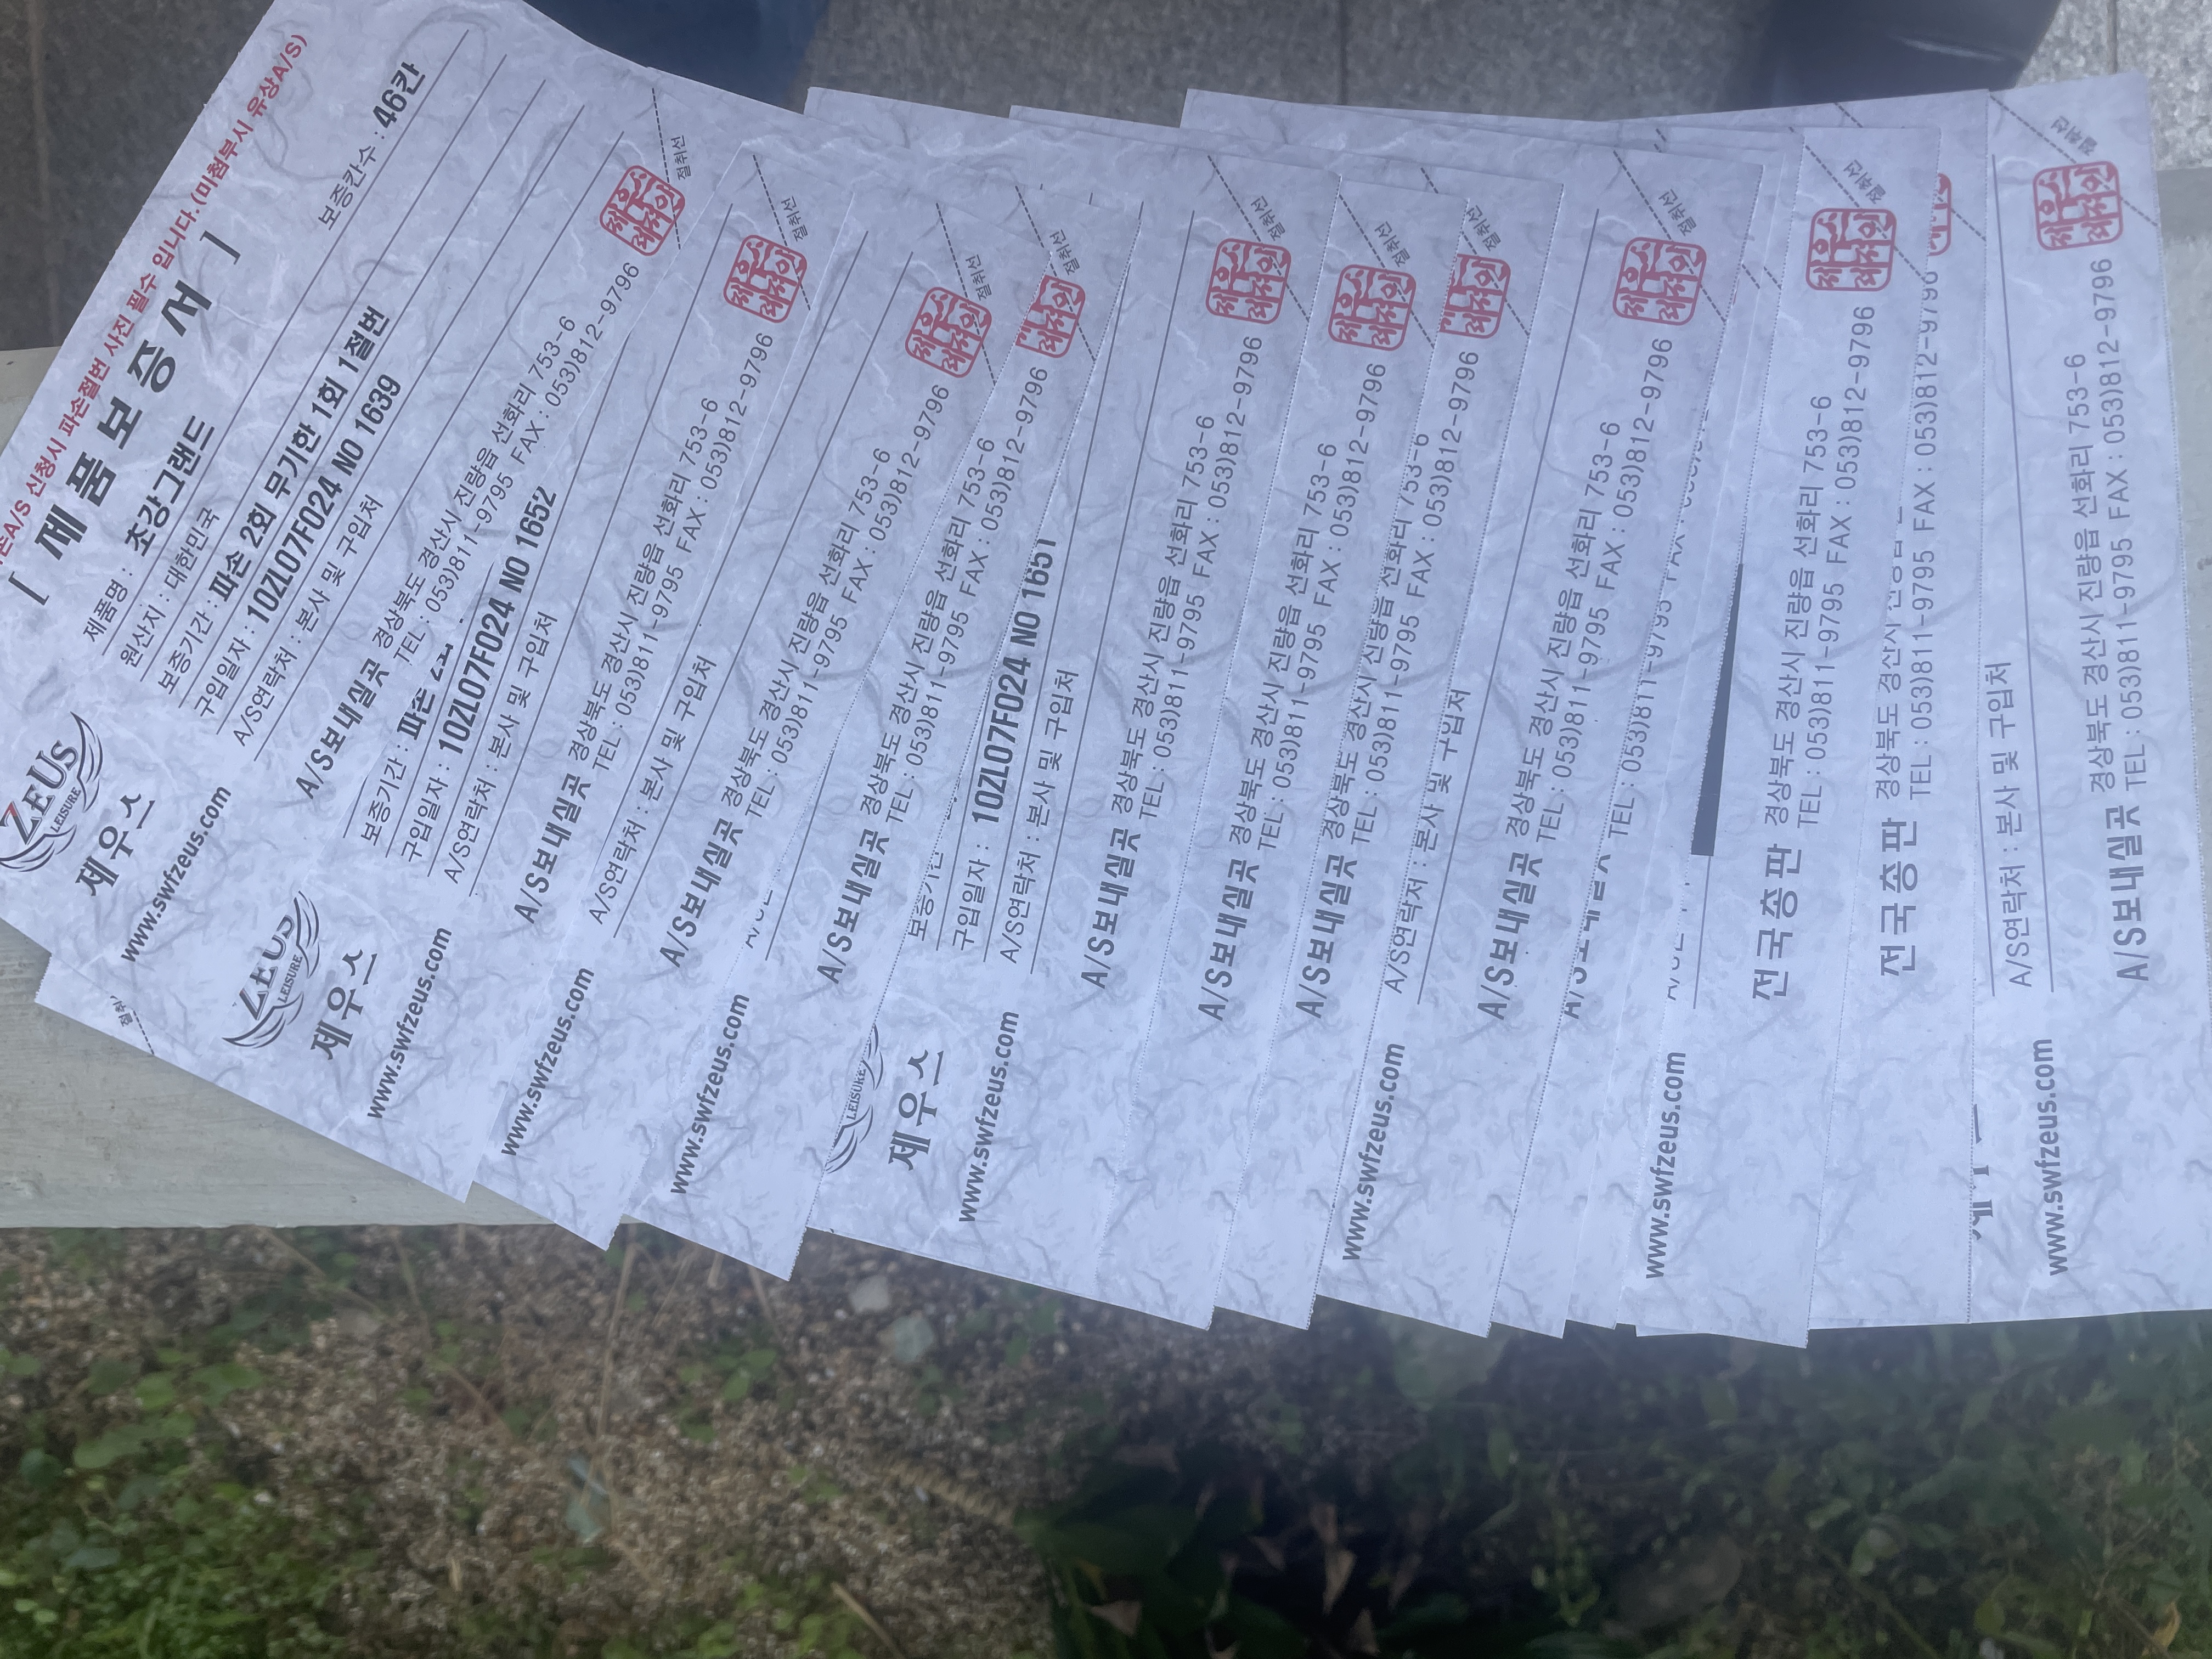 파손A/S 신청시 파손절번 사진 필수 입니다.(미첨부시 유상A/S)
[ 제 품 보 증 서 ]
제품명 : 초강그랜드
보증칸수 : 46칸
원산지 : 대한민국
보증기간 : 파손 2회 무기한 1회 1절번
구입일자 : 10ZL07F024 NO 1639
A/S연락처 : 본사 및 구입처
A/S보내실곳 경상북도 경산시 진량읍 선화리 753-6
TEL : 053)811-9795 FAX : 053)812-9796
제우스레저인
절취선
ZEUS
LEISURE
제우스
www.swfzeus.com
보증기간 : 파손 2회
구입일자 : 10ZL07F024 NO 1652
A/S연락처 : 본사 및 구입처
A/S보내실곳 경상북도 경산시 진량읍 선화리 753-6
TEL : 053)811-9795 FAX : 053)812-9796
제우스레저인
절취선
ZEUS
LEISURE
제우스
www.swfzeus.com
A/S연락처 : 본사 및 구입처
A/S보내실곳 경상북도 경산시 진량읍 선화리 753-6
TEL : 053)811-9795 FAX : 053)812-9796
제우스레저인
절취선
www.swfzeus.com
A/S보내실곳 경상북도 경산시 진량읍 선화리 753-6
TEL : 053)811-9795 FAX : 053)812-9796
절취선
www.swfzeus.com
보증기간
구입일자 : 10ZL07F024 NO 1651
A/S연락처 : 본사 및 구입처
A/S보내실곳 경상북도 경산시 진량읍 선화리 753-6
TEL : 053)811-9795 FAX : 053)812-9796
제우스레저인
절취선
LEISURE
제우스
www.swfzeus.com
A/S보내실곳 경상북도 경산시 진량읍 선화리 753-6
TEL : 053)811-9795 FAX : 053)812-9796
제우스레저인
절취선
A/S보내실곳 경상북도 경산시 진량읍 선화리 753-6
TEL : 053)811-9795 FAX : 053)812-9796
절취선
A/S연락처 : 본사 및 구입처
A/S보내실곳 경상북도 경산시 진량읍 선화리 753-6
TEL : 053)811-9795 FAX : 053)812-9796
제우스레저인
절취선
www.swfzeus.com
A/S보내실곳
TEL : 053)811-9795 FAX :
전국총판 경상북도 경산시 진량읍 선화리 753-6
TEL : 053)811-9795 FAX : 053)812-9796
제우스레저인
절취선
www.swfzeus.com
전국총판 경상북도 경산시 진량읍
TEL : 053)811-9795 FAX : 053)812-9796
A/S연락처 : 본사 및 구입처
A/S보내실곳 경상북도 경산시 진량읍 선화리 753-6
TEL : 053)811-9795 FAX : 053)812-9796
제우스레저인
절취선
www.swfzeus.com